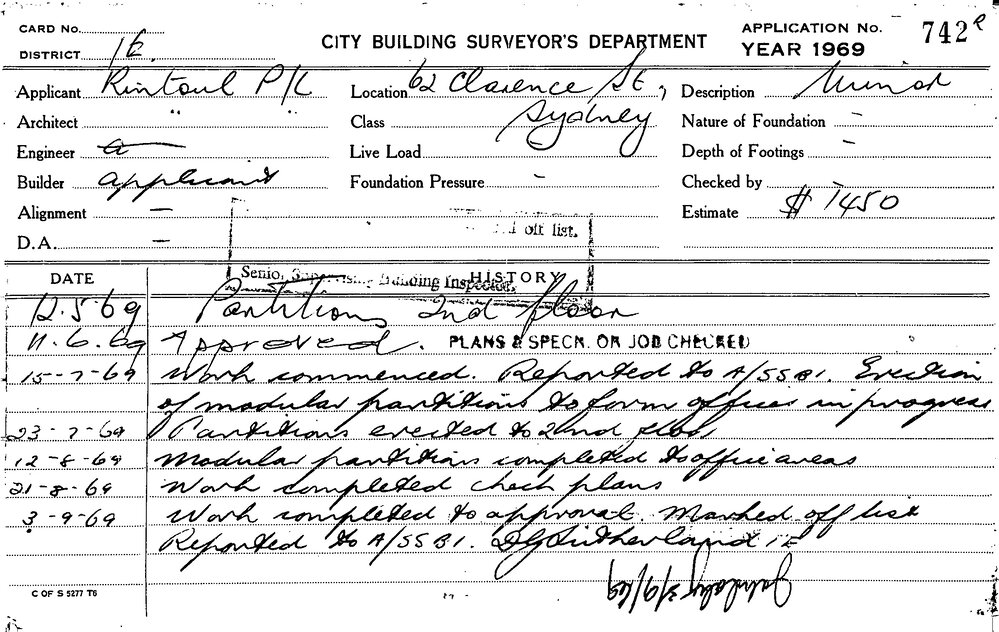 CARD No.
DISTRICT 1E.
CITY BUILDING SURVEYOR'S DEPARTMENT
APPLICATION No. 742
YEAR 1969
Applicant Rintoul P/L
Location 62 Clarence St, Sydney
Description Minor
Architect " "
Class
Nature of Foundation -
Engineer a
Live Load
Depth of Footings -
Builder applicant
Foundation Pressure -
Checked by -
Alignment -
Estimate $ 1450
D.A. -
off list.
Senior Supervising Building Inspector.
DATE HISTORY
12.5.69 Partitions 2nd floor
11.6.69 Approved. PLANS & SPECN. OR JOB CHECKED
15-7-69 Work commenced. Reported to A/SSBI. Erection
of modular partitions to form offices in progress
23-7-69 Partitions erected to 2nd floor
12-8-69 Modular partitions completed to office areas
21-8-69 Work completed check plans
3-9-69 Work completed to approval. Marked off list
Reported to A/SSBI. DGSutherland 1E
3/9/69
C OF S 5277 T6